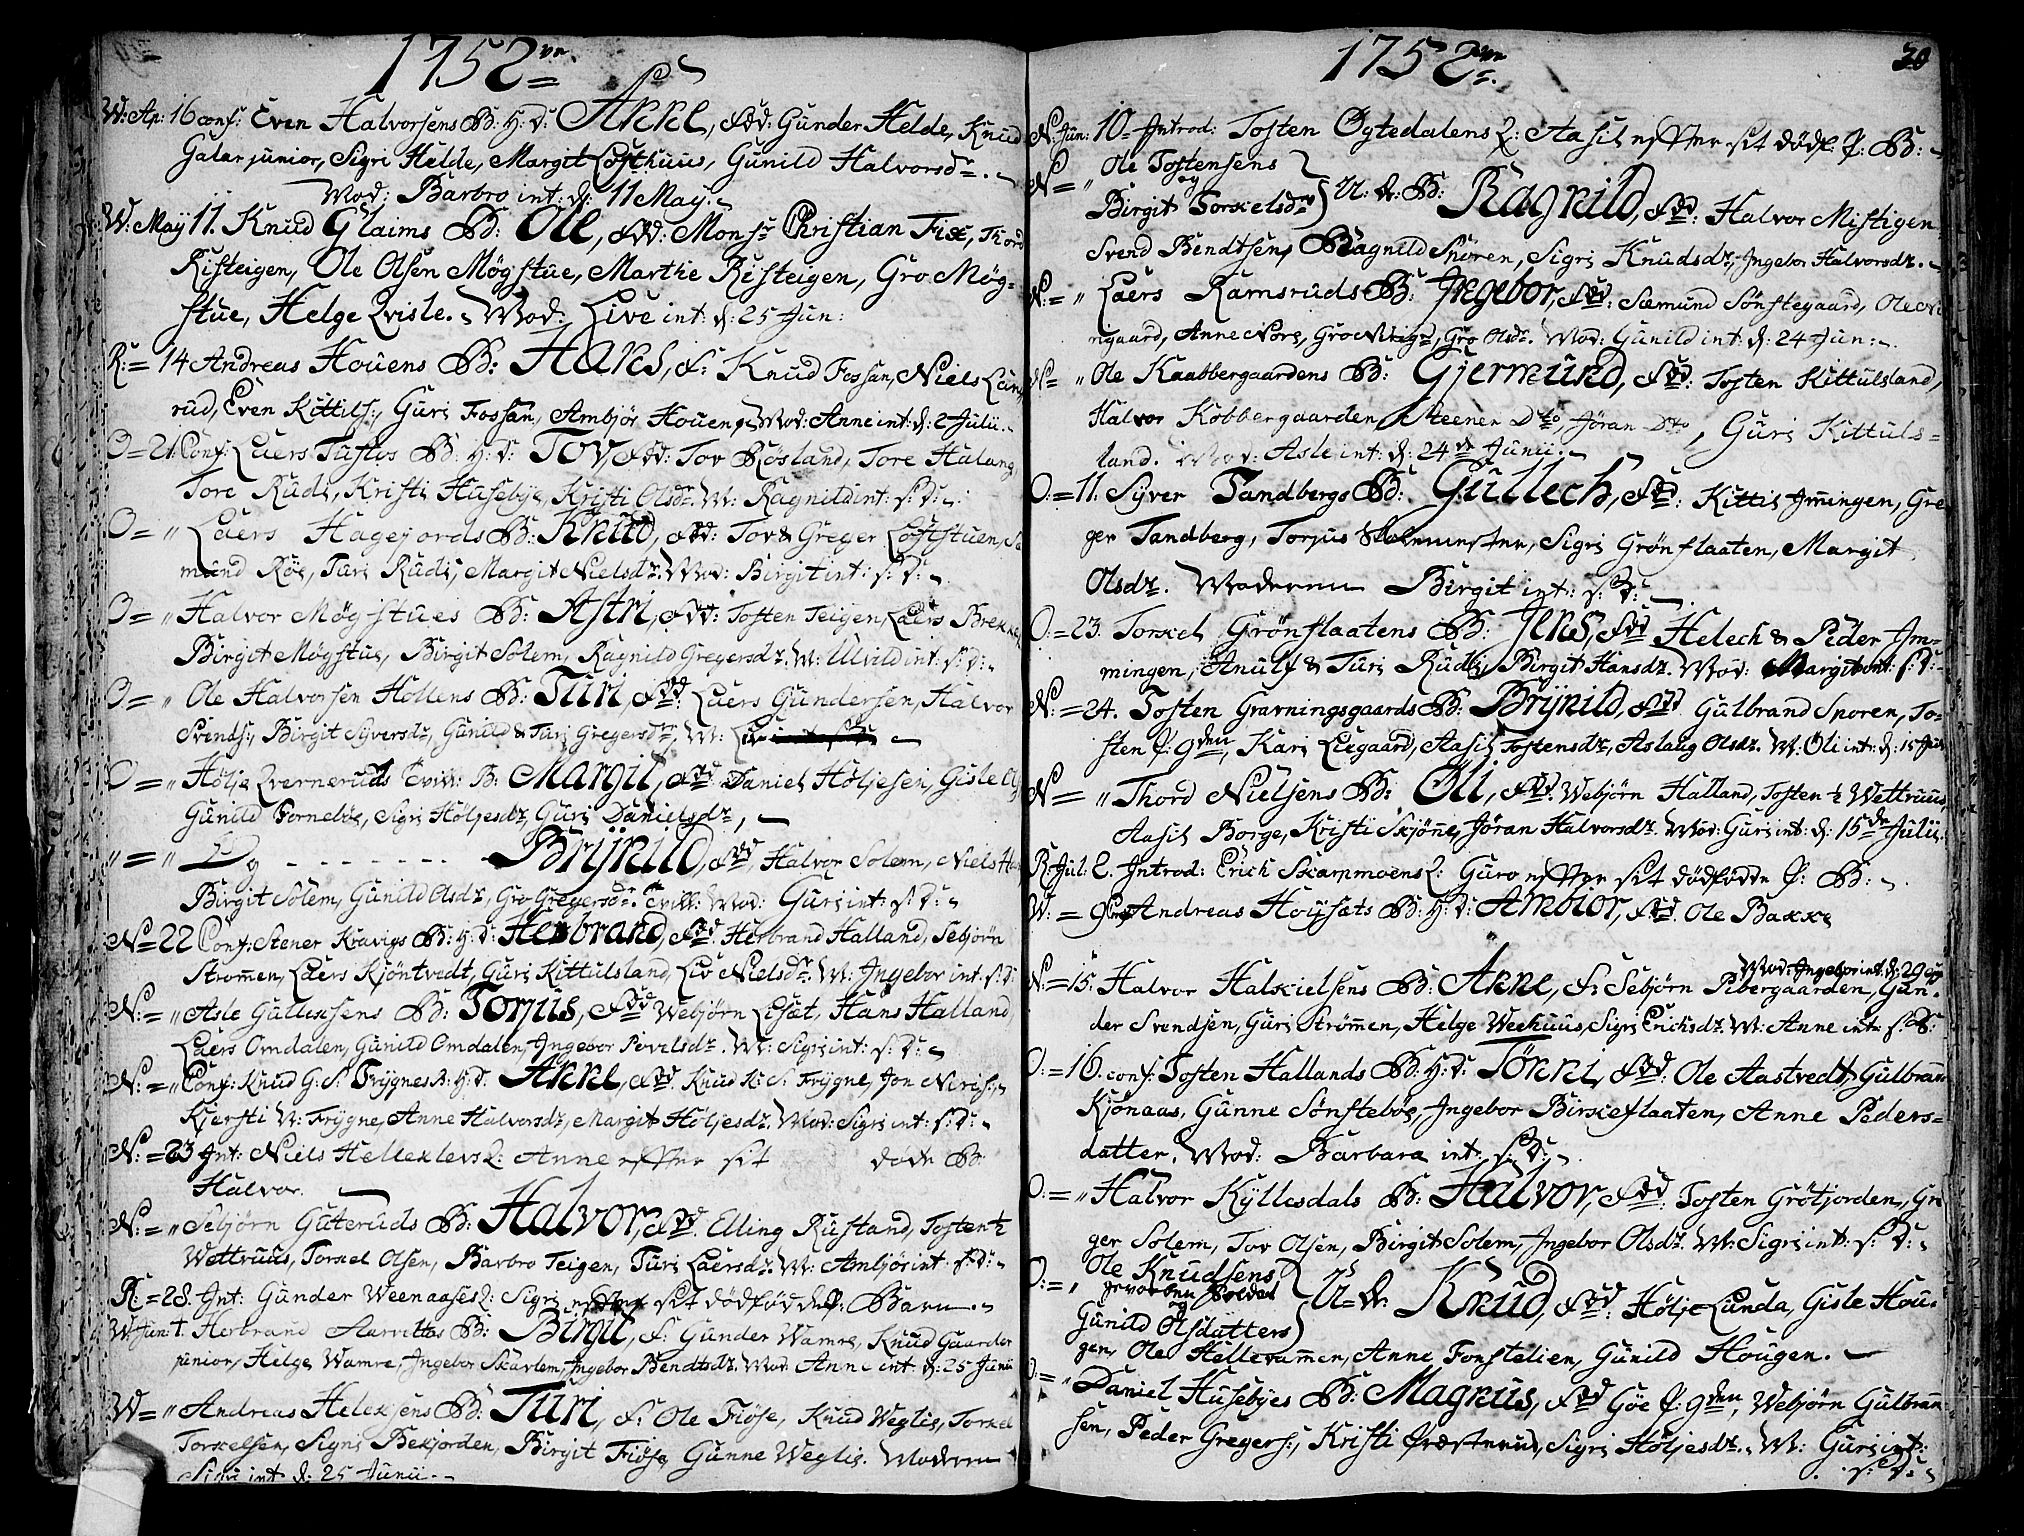 1752
W: Ap: 16 conf: Even Halvorsens B: H: D: Anne, Fdd: Gunder Helde, Knud
Galar junior, Sigri Helde, Margit Lofthuus, Gunild Halvorsdr.
Mod: Barbro int: d: 11 May.
W: May 11. Knud Glaims B: Ole, Fdd: Monsr Christian Fise, Thord
Risteigen, Ole Olsen Møgstue, Marthe Risteigen, Gro Møg-
stue, Helge Qvisle. Mod: Live int: d: 25 Jun:
R: = 14 Andreas Houens B: Hans, F: Knud Fossan, Niels Lund
rud, Even Kittils:, Guri Fossan, Ambjør Houen, Mod: Anne int: d: 2 Julii.
O = 21. Conf: Laers Tuftes B: H: D: Tov, Fdd: Tov Røsland, Tore Haland
Tore Rudi, Kristi Husebye, Kristi Olsdr. M: Ragnild int: s: D:
O = " Laers Hagejords B: Knud, Fdd: Tov & Greger Loftstuen, Sæ
mund Røe, Turi Rudi, Margit Nielsdr. Mod: Birgit int: s: D:
O = " Halvor Møgstues B: Astri, Fdd: Tosten Teigen, Laers Brekke,
Birgit Møgstue, Birgit Solem, Ragnild Gregersdr. M: Ulvild int: s: D:
O = " Ole Halvorsen Hollens B: Turi, Fdd: Laers Gundersen, Halvor
Svends:, Birgit Syversdr, Gunild & Turi Gregersdr, M: Liv
O = " Hølje Qverneruds Tvill: B: Margit, Fdd: Daniel Høljesen, Gisle
Gunild Fornebøe, Sigri Høljesdr, Guri Danielsdr,
" = " Og - - - - - - - - Brynild, Fdd: Halvor Solem, Niels
Birgit Solem, Gunild Olsdr, Gro Gregersdr. Tvill: Mod: Guri int: s: D:
N = 22 Conf: Stener Kravigs B: H: D: Herbrand, Fdd: Herbrand Halland, Sebjørn
Strømen, Laers Kjøntvedt, Guri Kittulsland, Liv Nielsdr. M: Ingebor int: s: D:
N: = " Asle Gulliksens B: Torjus, Fdd: Webjørn Lisæt, Hans Halland,
Laers Omdalen, Gunild Omdalen, Ingebor Povelsdr. M: Sigri int: s: D:
N: = " Conf: Knud G: S: Frygnes B: H: D: Anne, Fdd: Knud K: S: Frygne, Jon Niris:
Kjersti N: Frygne, Anne Halvorsdr, Margit Høljesdr. Mod: Sigri int: s: D:
N: = 23 Int: Niels Helleklevs Q: Anne effter sit døde B:
Halvor.
N: = " Sebjørn Guteruds B: Halvor, Fdd: Elling Rustand, Tosten ½
Wettruus, Torkel Olsen, Barbro Teigen, Turi Laersdr. M: Ambjør int: s: D:
R: = 28. Int: Gunder Weenaases Q: Sigri effter sit dødføddef: Barn.
W: Jun: 1. Herbrand Aarvettas B: Birgit, F: Gunder Wamre, Knud Gaarder
junior, Helge Wamre, Ingebor Skarlem, Ingebor Bendtsdr. Mod: Anne int: d: 25 Junii
W = " Andreas Heleksens B: Turi, F: Ole Fiøse, Knud Weglie, Torkel
Torkelsen, Signi Bekjorden, Birgit Fiøse, Gunne Weglie. Moderen
Sigri int d: 25 Junii.
1752
30
N: Jun: 10 = Introd: Tosten Øgtedalens Q: Aasil effter sit dødf: P: B:
N = " Ole Tostensens
og
Birgit Torkelsdrs
U: Æ: B: Ragnild, Fdd: Halvor Mistigen,
Svend Bendtsen, Ragnild Snøren, Sigri Knudsdr, Ingebor Halvorsdr.
N: = " Laers Ramsruds B: Ingebor, Fdd: Sæmund Sønstegaard, Ole Ni
rigaard, Anne Nore, Gro Nirigrd, Gro Olsdr. Mod: Gunild int: d: 24 Jun:
N = " Ole Kaabbergaardens B: Gjermund, Fdd: Tosten Kittulsland,
Halvor Kobbergaarden, Steener Dito, Jøran Dto, Guri Kittuls-
land. Mod: Asle int: d: 24de Junii.
O: = 11. Syver Tandbergs B: Gullech, Fdd: Kittil Imingen, Gre
ger Tandberg, Torjus Skolemester, Sigri Grønflaaten, Margit
Olsdr. Moderen Birgit int: s: D:
O: = 23. Torkel Grønflaatens B: Jens, Fdd Helech & Peder Im-
mingen, Anulf & Turi Rudi, Birgit Hansdr. Mod: Margit int: s: D:
N: = 24. Tosten Gravningsgaards B: Brynild, Fdd Gulbrand Sporen, To-
sten P: gden, Kari Liegaard, Aasil Tostensdr, Aslaug Olsdr. M: Oli int: d: 15 Julii
N = " Thord Nielsens B: Oli, Fdd: Webjørn Halland, Tosten ½ Wettruus,
Aasil Borge, Kristi Skjøne, Jøran Halvorsdr. Mod: Guri int: d: 15de Julii.
R: Jul: 2. Introd: Erich Skarpmoens Q: Guro effter sit dødfødde P: B:
W: = 9 Conf Andreas Hoysæts B: H: D: Ambior, Fdd: Ole Bakke
Mod: Ingebor int: d: 29
N: = 15. Halvor Halskielsens B: Anne, F: Sebjørn Pibergaarden, Gun-
der Svendsen, Guri Strømen, Helge Weehuus, Sigri Erichsdr. M: Anne int: s: D:
O: = 16. conf: Tosten Hallands B: H: D: Tønni, Fdd: Ole Aastvedt, Gulbran
Kjønaas, Gunne Sønstebøe, Ingebor Birkeflaaten, Anne Peders-
datter. Mod: Barbara int: s: D:
O: = " Halvor Kyllesdals B: Halvor, Fdd: Tosten Grøtjorden, Gre
ger Solem, Tov Olsen, Birgit Solem, Ingebor Olsdr. M: Sigri int: s: D:
O: = " Ole Knudsens
gevorben Soldat
og
Gunild Olsdatters
U Æ: Knud, Fdd: Hølje Lunda, Gisle Hou-
gen, Ole Hellerammen, Anne Fonstelien, Gunild Hougen.
O: = " Daniel Husebyes B: Magnus, Fdd Goe P: gden, Webjørn Gulbran
sen, Peder Gregers:, Kristi Præsterud, Sigri Høljesdr. M: Guri int:
s: D: